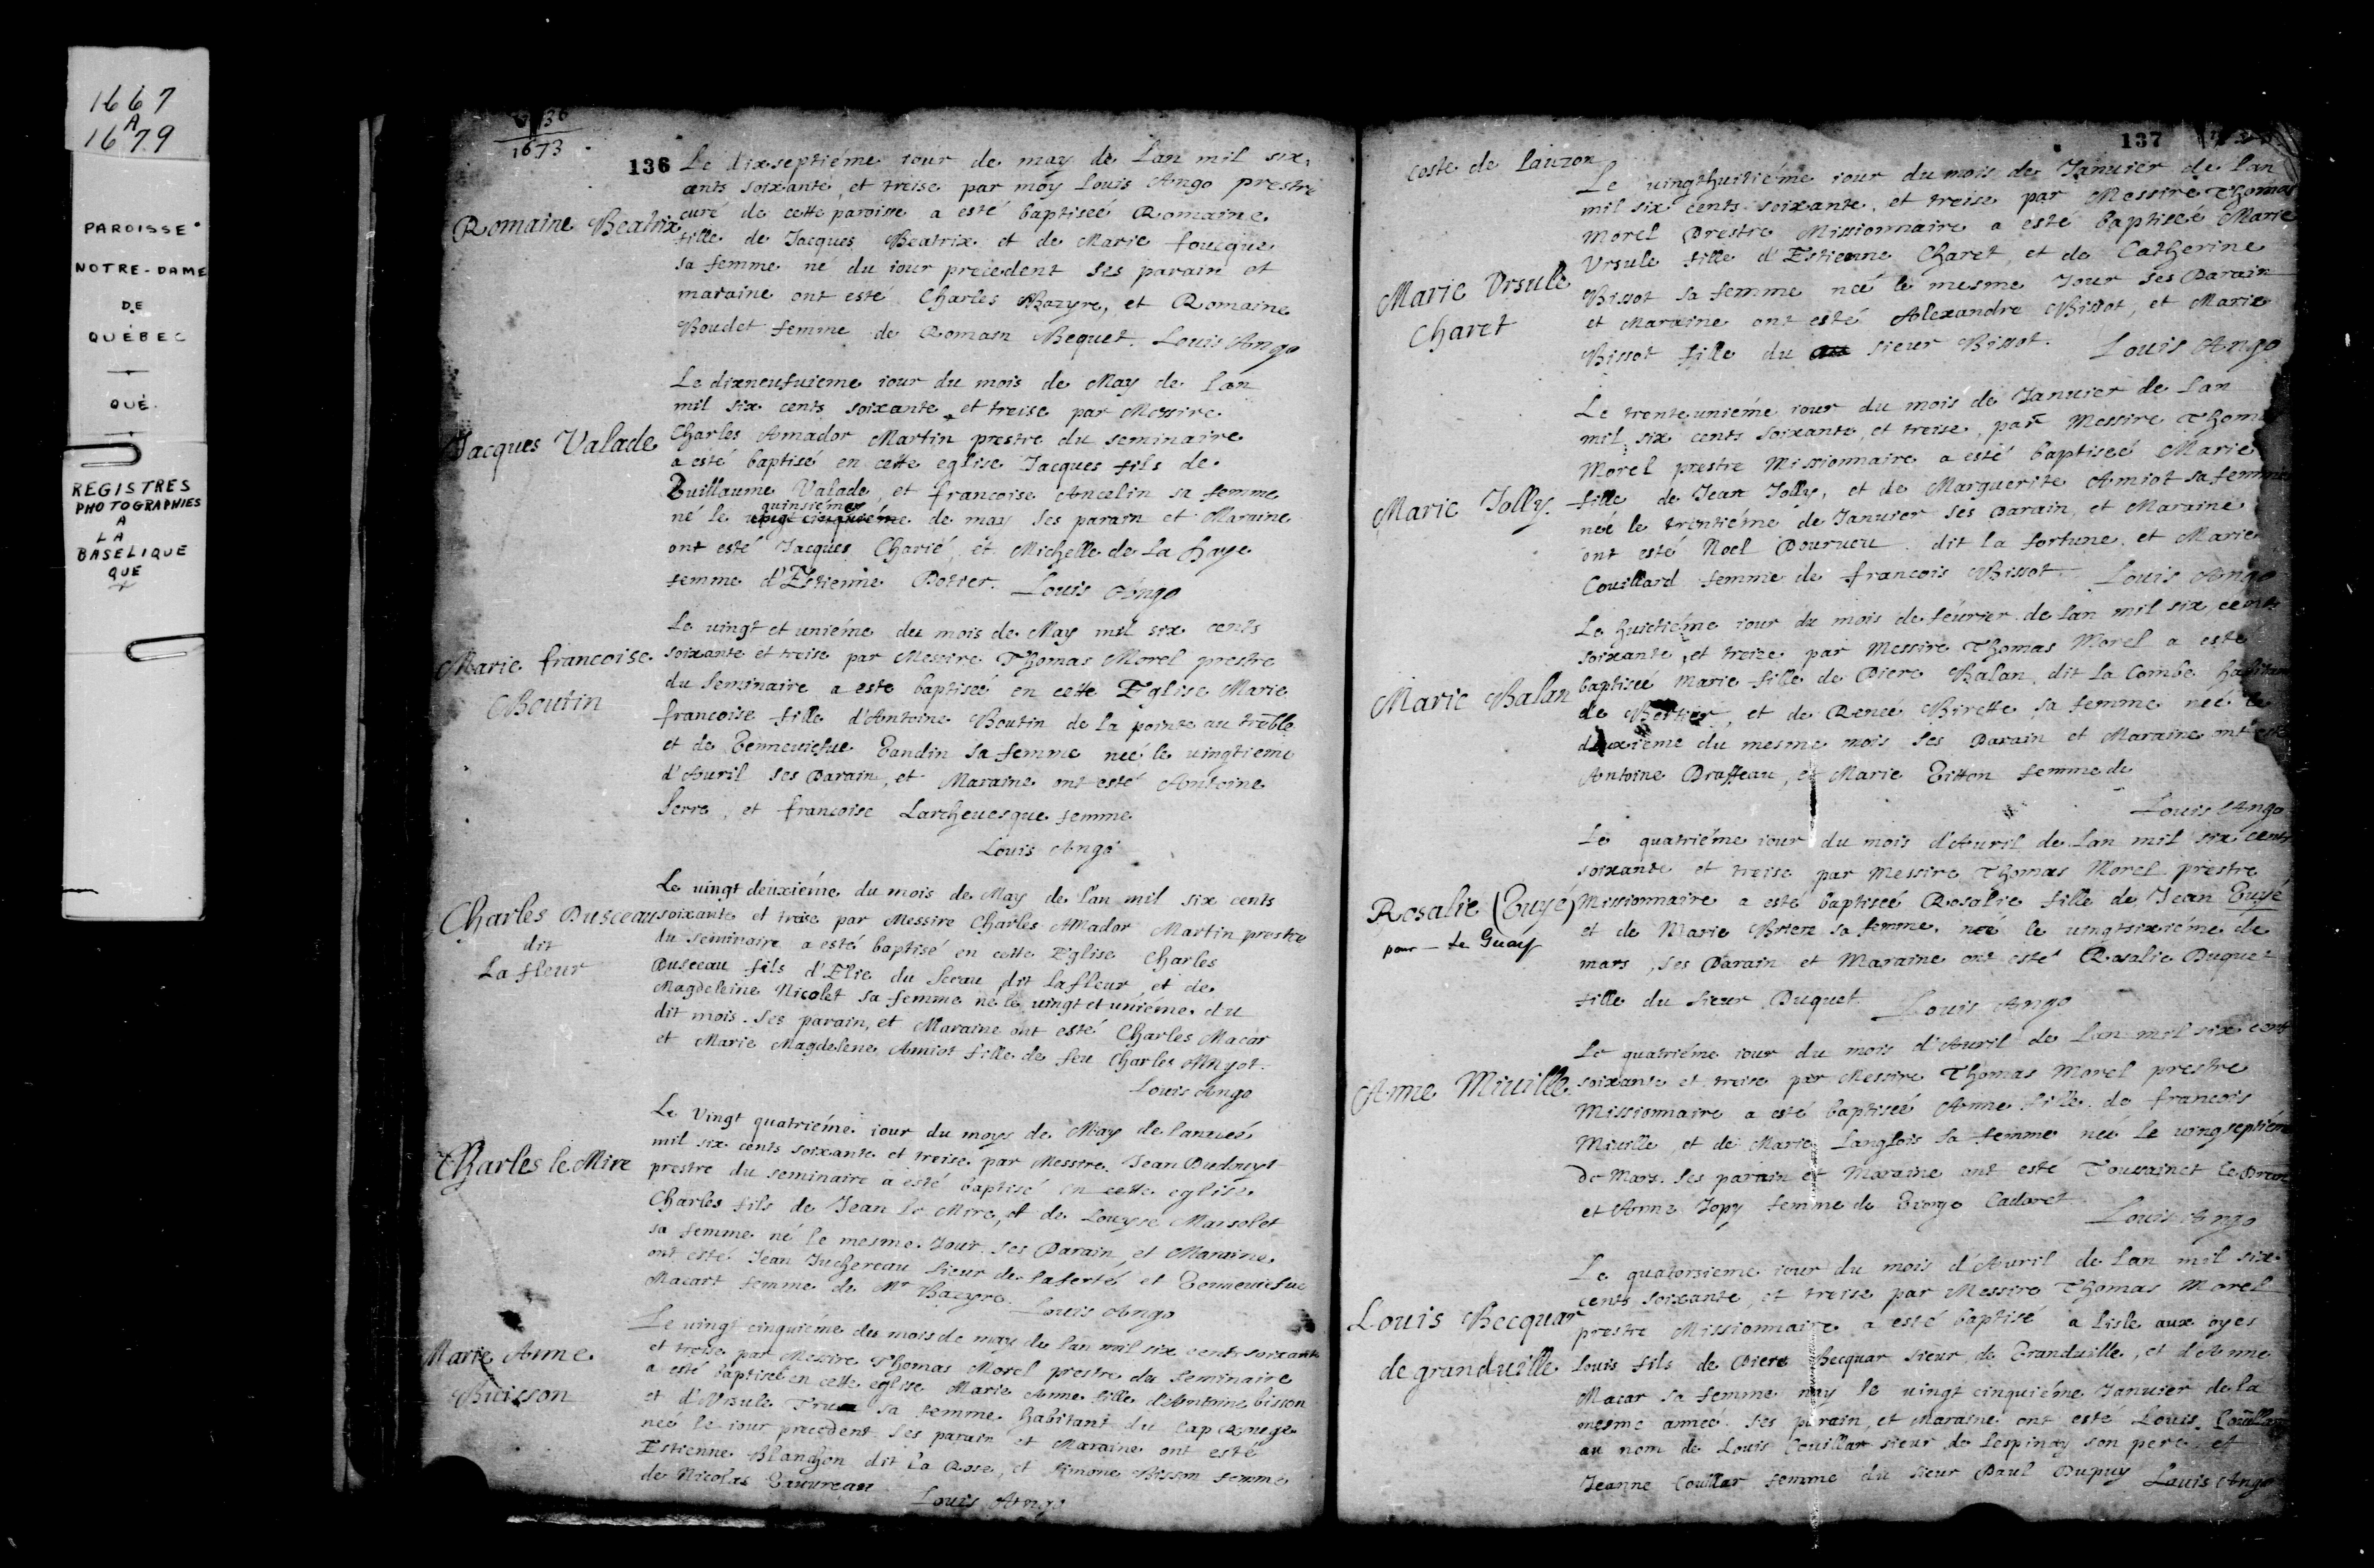 1667
A
1679
PAROISSE
NOTRE-DAME
DE
QUÉBEC
QUÉ.
REGISTRES
PHOTOGRAPHIES
A
LA
BASELIQUE
QUE
1673
136
Le dixseptiéme iour de may de Lan mil six
cents soixante, et treise par moy Louis Ango prestre
curé de cette paroisse a esté baptiseé Romaine
Romaine Beatrix
fille de Jacques Beatrix et de Marie foucque
sa femme né du iour precedent ses parain et
maraine ont esté Charles Bazyre, et Romaine
Boudet femme de Romain Bequet. Louis Ango
Le dixneufuieme iour du mois de May de Lan
mil six cents soixante et treise par Messire
Jacques Valade
Charles Amador Martin prestre du seminaire
a esté baptisé en cette eglise Jacques fils de
Guillaume Valade, et francoise Ancelin sa femme
quinsiéme
né le vingt cinquiéme de may ses parain et Maraine
ont esté Jacques Charié, et Michelle de la haye
femme d'Estienne Potier. Louis Ango
Le vingt et uniéme du mois de May mil six cents
Marie francoise
Boutin
soixante et treise par Messire Thomas Morel prestre
du Seminaire a esté baptiseé en cette Eglise Marie
francoise fille d'Antoine Boutin de la pointe au treble
et de Genneuiefue Gandin sa femme neé le uingtieme
d'Auril ses Parain, et Maraine ont esté Antoine
Serre, et francoise Larcheuesque femme
Louis Ango
Le vingt deuxiéme du mois de May de l'an mil six cents
Charles Dusceau
dit
La fleur
soixante et treise par Messire Charles Amador Martin prestre
du seminaire a esté baptisé en cette Eglise Charles
Dusceau fils d'Elie du Sceau dit La fleur, et de
Magdeleine Nicolet sa femme né le vingt et uniéme du
dit mois. Ses parain, et Maraine ont esté Charles Macar
et Marie Magdelene Amiot fille de feu Charles Amyot.
Louis Ango
Le Vingt quatriéme iour du moys de May de l'anneé
Charles le Mire
mil six cents soixante et treise par Messire Jean Dudouyt
prestre du seminaire a esté baptisé en cette eglise
Charles fils de Jean Le Mire, et de Louyse Marsolet
sa femme né le mesme Jour. Ses Parain, et Maraine
ont esté Jean Juchereau sieur de laferté, et Genneuiefue
Macart femme de Mr Bazyre. Louis Ango
Le vingt cinquiéme du mois de may de lan mil six cents soixante
Marie Anne
Buisson
et treise par Messire Thomas Morel prestre du Seminaire
a esté baptiseé en cette eglise Marie Anne fille d'Antoine bisson
et d'Vrsule sa femme habitant du Cap Rouge
neé le iour precedent. Ses parain et Maraine ont esté
Estienne Blanchon dit la Rose, et Simone Bisson femme
de Nicolas Gauureau Louis Ango
137
coste de lauzon
Le uingthuitiéme iour du mois de Januier de lan
mil six cents soixante, et treise par Messire Thomas
Morel Prestre Missionnaire a esté baptiseé Marie
Vrsule fille d'Estienne Charet, et de Catherine
Marie Vrsule
Charet
Bissot sa femme neé le mesme Jour ses Parain
et Maraine ont esté Alexandre Bissot, et Marie
Bissot fille du sieur Bissot. Louis Ango
Le trente uniéme iour du mois de Januier de lan
mil six cents soixante, et treise, par Messire Thomas
Morel prestre Missionnaire a esté baptiseé Marie
Marie Jolly.
fille de Jean Jolly, et de Marguerite Amiot sa femme
neé le trentiéme de Januier ses Parain, et Maraine
ont esté Noel dit la fortune, et Marie
Couillard femme de francois Bissot. Louis Ango
Le huictiéme iour du mois de féurier de lan mil six cents
soixante, et treize par Messire Thomas Morel a esté
Marie Balan
baptiseé Marie fille de Piere Balan, dit la Combe habitan
de Bertier, et de Renee Birette sa femme neé le
deuxieme du mesme mois ses Parain et Maraine ont esté
Antoine, et Marie Gitton femme de
Louis Ango
Le quatriéme iour du mois d'Auril de Lan mil six cents
soixante et treise par Messire Thomas Morel prestre
Rosalie (Guyé)
pour — Le Guay
Missionnaire a esté baptiseé Rosalie fille de Jean Guyé
et de Marie Briere sa femme, neé le uingtsixiéme de
mars, ses Parain et Maraine ont esté Rosalie Duquet
fille du Sieur Duquet. Louis Ango
Le quatriéme iour du mois d'Auril de Lan mil six cent
Anne Miuille
soixante et treise par Messire Thomas Morel prestre
Missionnaire a esté baptiseé Anne fille de francois
Miuille et de Marie Langlois sa femme neé le vingseptiéme
de Mars. Ses parain et Maraine ont esté Toussainct
et Anne Jopy femme de George Cadoret
Louis Ango
Le quatorsieme iour du mois d'Auril de Lan mil six
cents soixante, et treise par Messire Thomas Morel
Louis Becquar
de granduille
prestre Missionnaire a esté baptisé a lisle aux oyes
Louis fils de Piere becquar sieur de Granduille, et d'Anne
Macar sa femme nay le uingt cinquiéme Januier de la
mesme anneé. Ses parain, et Maraine ont esté Louis Couillar
au nom de Louis Couillar sieur de Lespinay son pere, et
Jeanne Couillar femme du Sieur Paul Dupuy Louis Ango